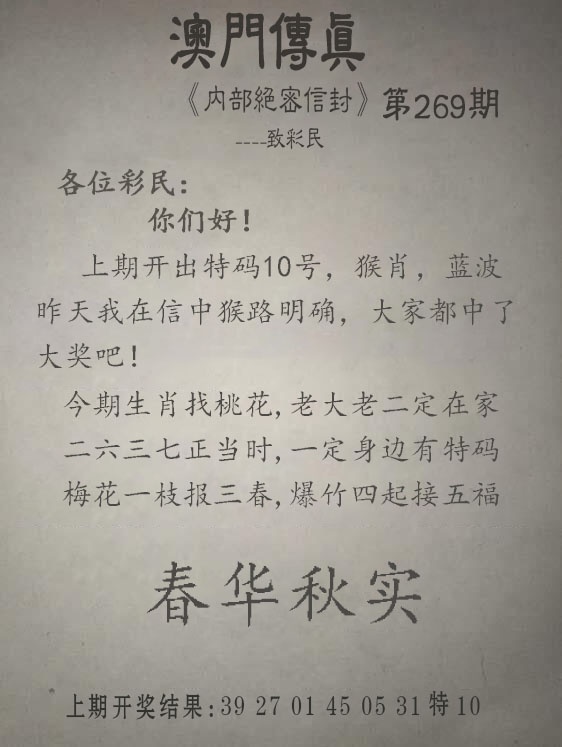 澳門傳眞
《内部絕密信封》第269期
----致彩民
各位彩民：
你们好！
上期开出特码10号，猴肖，蓝波
昨天我在信中猴路明确，大家都中了
大奖吧！
今期生肖找桃花,老大老二定在家
二六三七正当时,一定身边有特码
梅花一枝报三春,爆竹四起接五福
春华秋实
上期开奖结果:39 27 01 45 05 31 特10